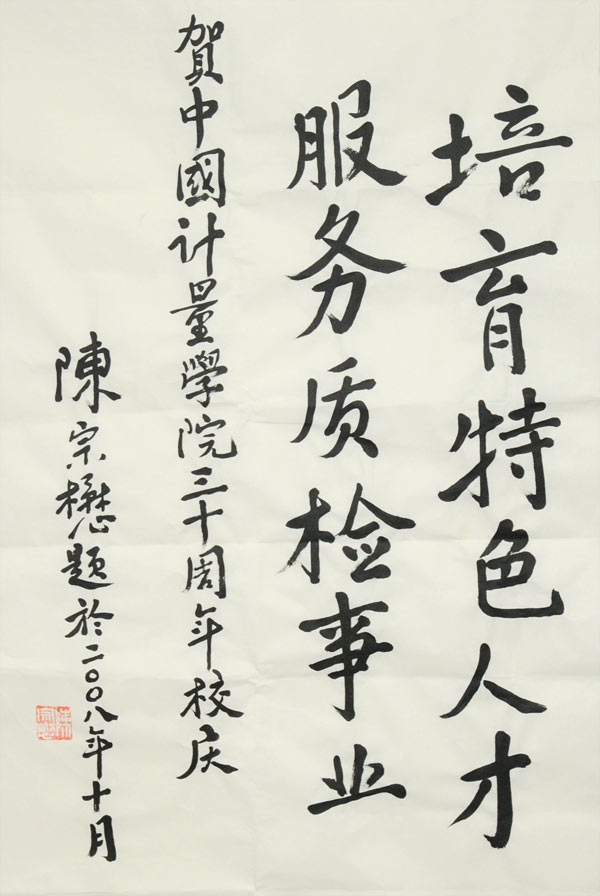 培育特色人才
服务质检事业
賀中國计量學院三十周年校庆
陳宗懋题於二〇〇八年十月